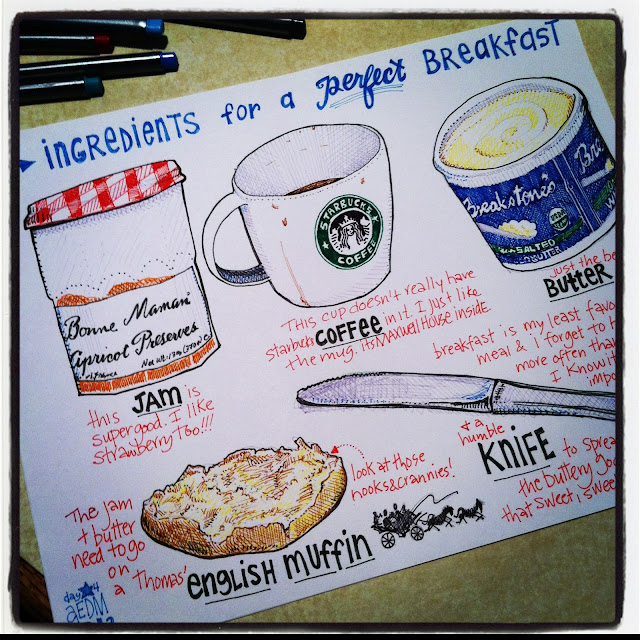 INGREDIENTS for a perfect BREAKFAST
Bonne Maman
Apricot Preserves
this JAM is
super good. I like
strawberry Too!!!
STARBUCKS
COFFEE
THIS CUP doesn't really have
starbucks COFFEE in it. I just like
the mug. Its MAXWELL HOUSE inside
Breakstone's
SALTED
BUTTER
Just the be
BUTTER
breakfast is my least favo
meal & i forget to
more often than
I Know it
impo
& a
humble
KNIFE to spread
the Buttery
that sweet
look at those
nooks & crannies!
The jam
+ butter
need to go
on
a Thomas' ENGLISH MUFFIN
day 4
AEDM